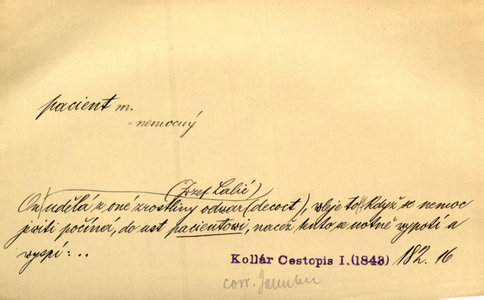 pacient m.
= nemocný
(Jozef Lalić)
On udělá z oné rostliny odwar (decoct), wleje to, když se nemoc
jewiti počíná, do ust pacientowi, načež tento se notně wypotí a
wyspí: ..
Kollár Cestopis I, (1843) 182. 16
corr.